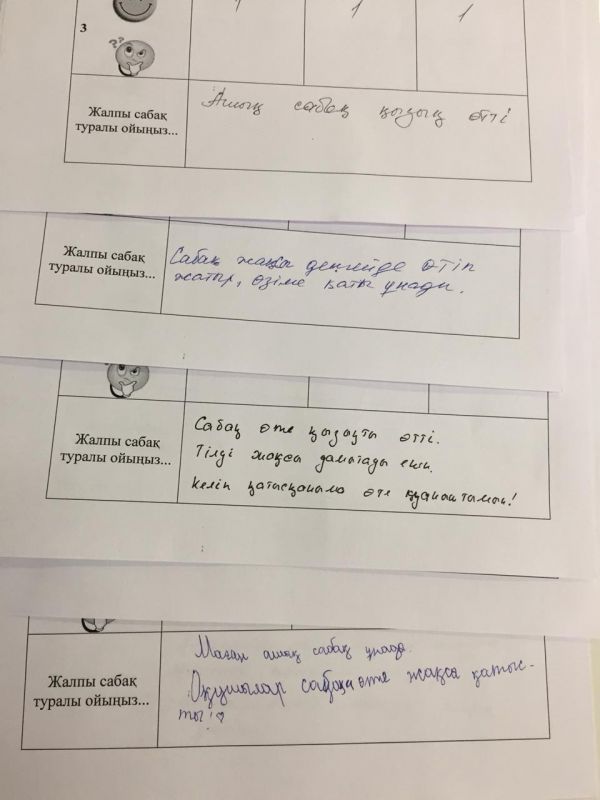 1 1 1
3
??
Жалпы сабақ
туралы ойыңыз...
Ашық сабақ қызық өтті
Жалпы сабақ
туралы ойыңыз...
Сабақ жақсы деңгейде өтіп
жатыр, өзіме қатты ұнады.
Жалпы сабақ
туралы ойыңыз...
Сабақ өте қызықты өтті.
Тілді жақсы дамытады екен.
Келіп қатысқаныма өте қуаныштымын!
Жалпы сабақ
туралы ойыңыз...
Маған ашық сабақ ұнады.
Оқушылар сабаққа өте жақсы қатыс-
ты!♡